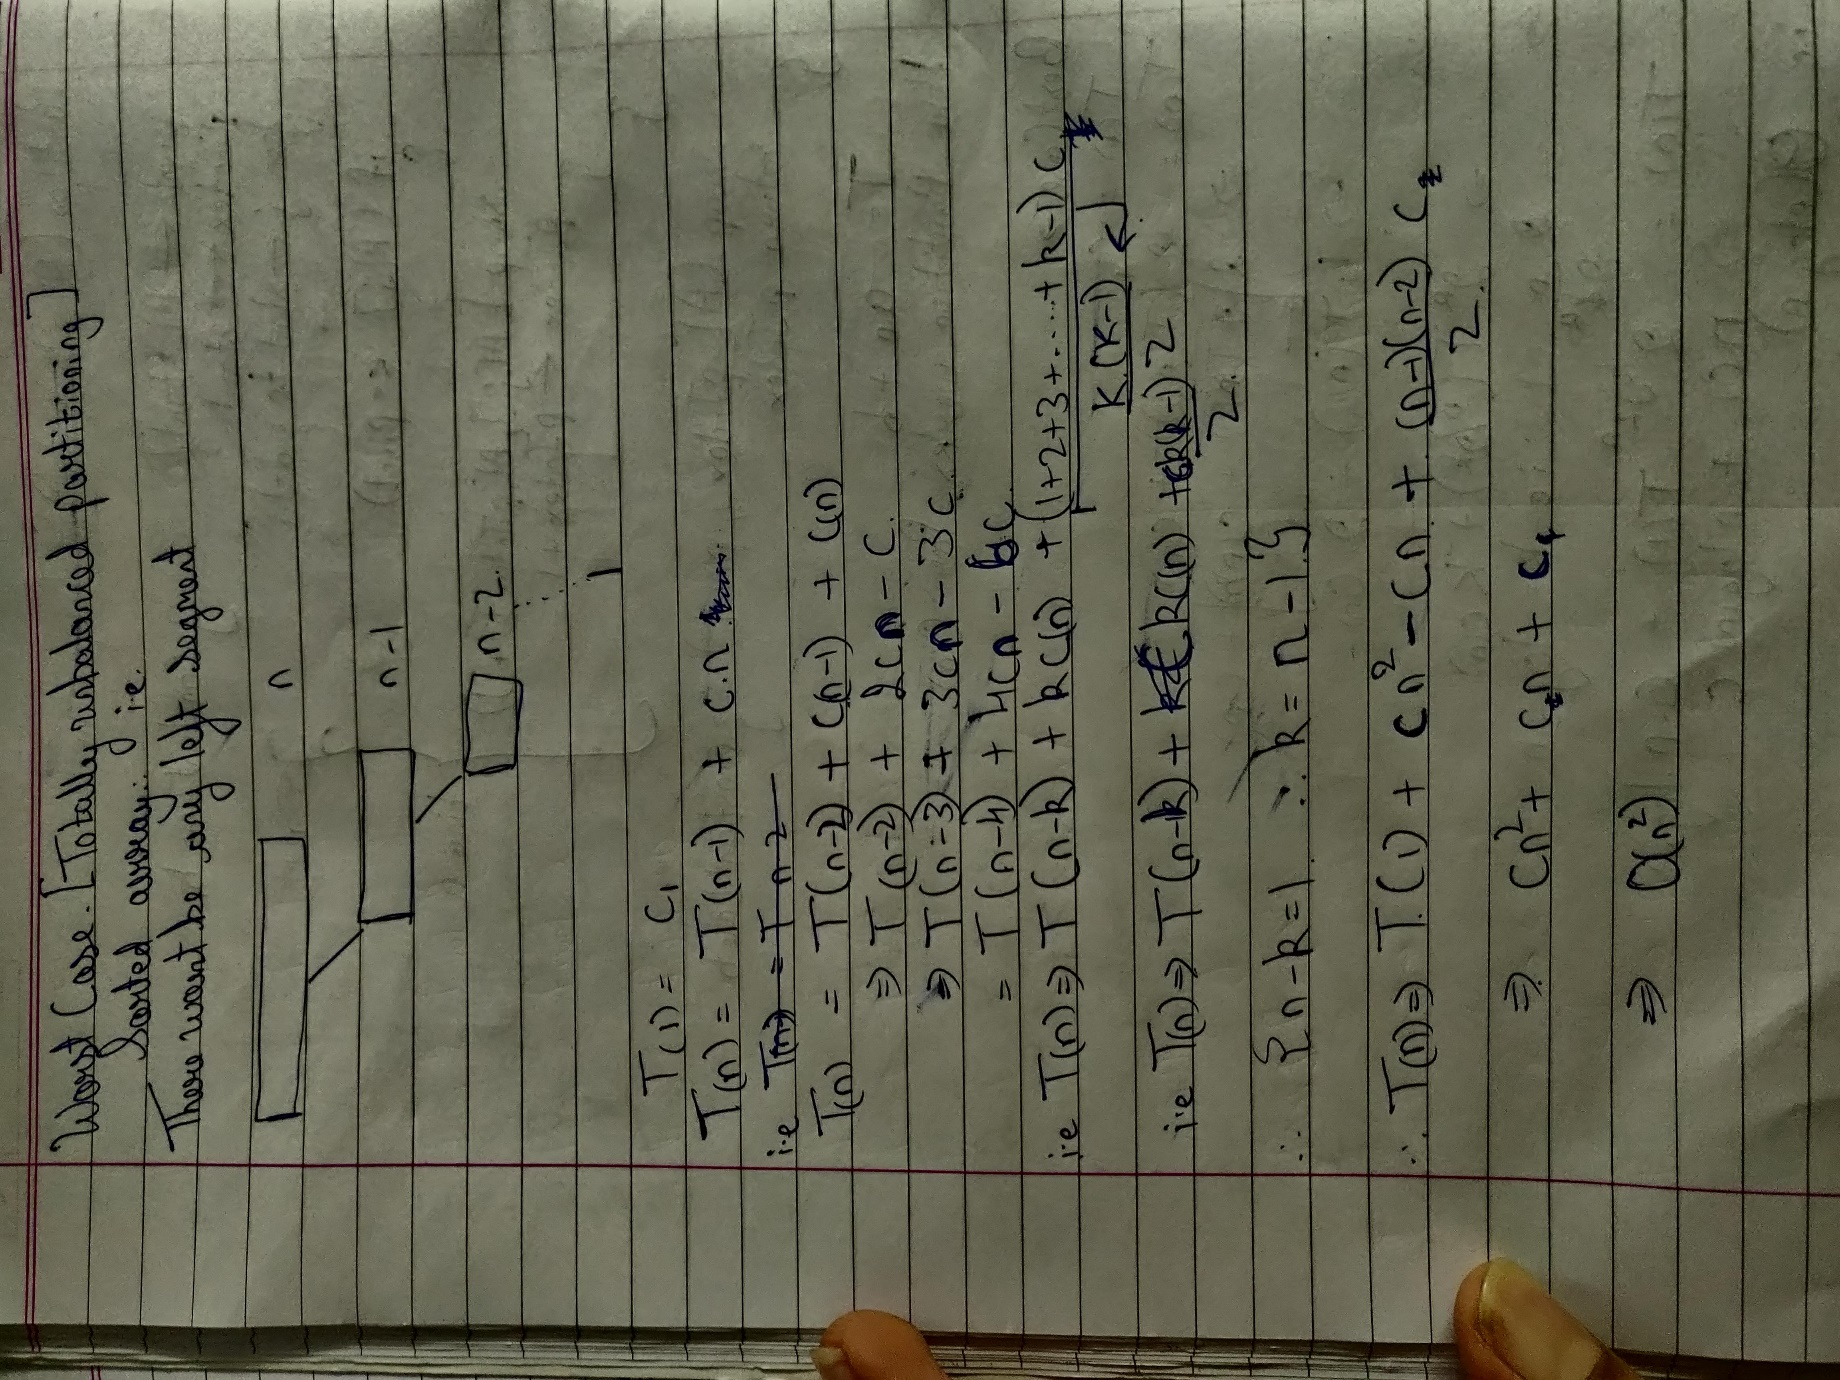 Worst Case. [Totally unbalanced partitioning]
Sorted array: i.e.
There wont be any left segment
n
n-1
n-2
1
T(1) = C₁
T(n) = T(n-1) + c.n
i.e T(n) = T n-2
T(n) = T(n-2) + C(n-1) + C(n)
⇒ T(n-2) + 2cn - C.
⇒ T(n-3) + 3cn - 3C
= T(n-4) + 4cn - 6C
i.e T(n) ⇒ T(n-k) + kc(n) + (1+2+3+.....+k-1)C
K(K-1)
2
i.e T(n) ⇒ T(n-k) + kC(n) + ck(k-1)
2.
∴ {n-k=1 ∴ k = n-1}
∴ T(n) ⇒ T(1) + cn² - cn + (n-1)(n-2) C
2.
⇒ Cn² + C₂n + C₄
⇒ O(n²)